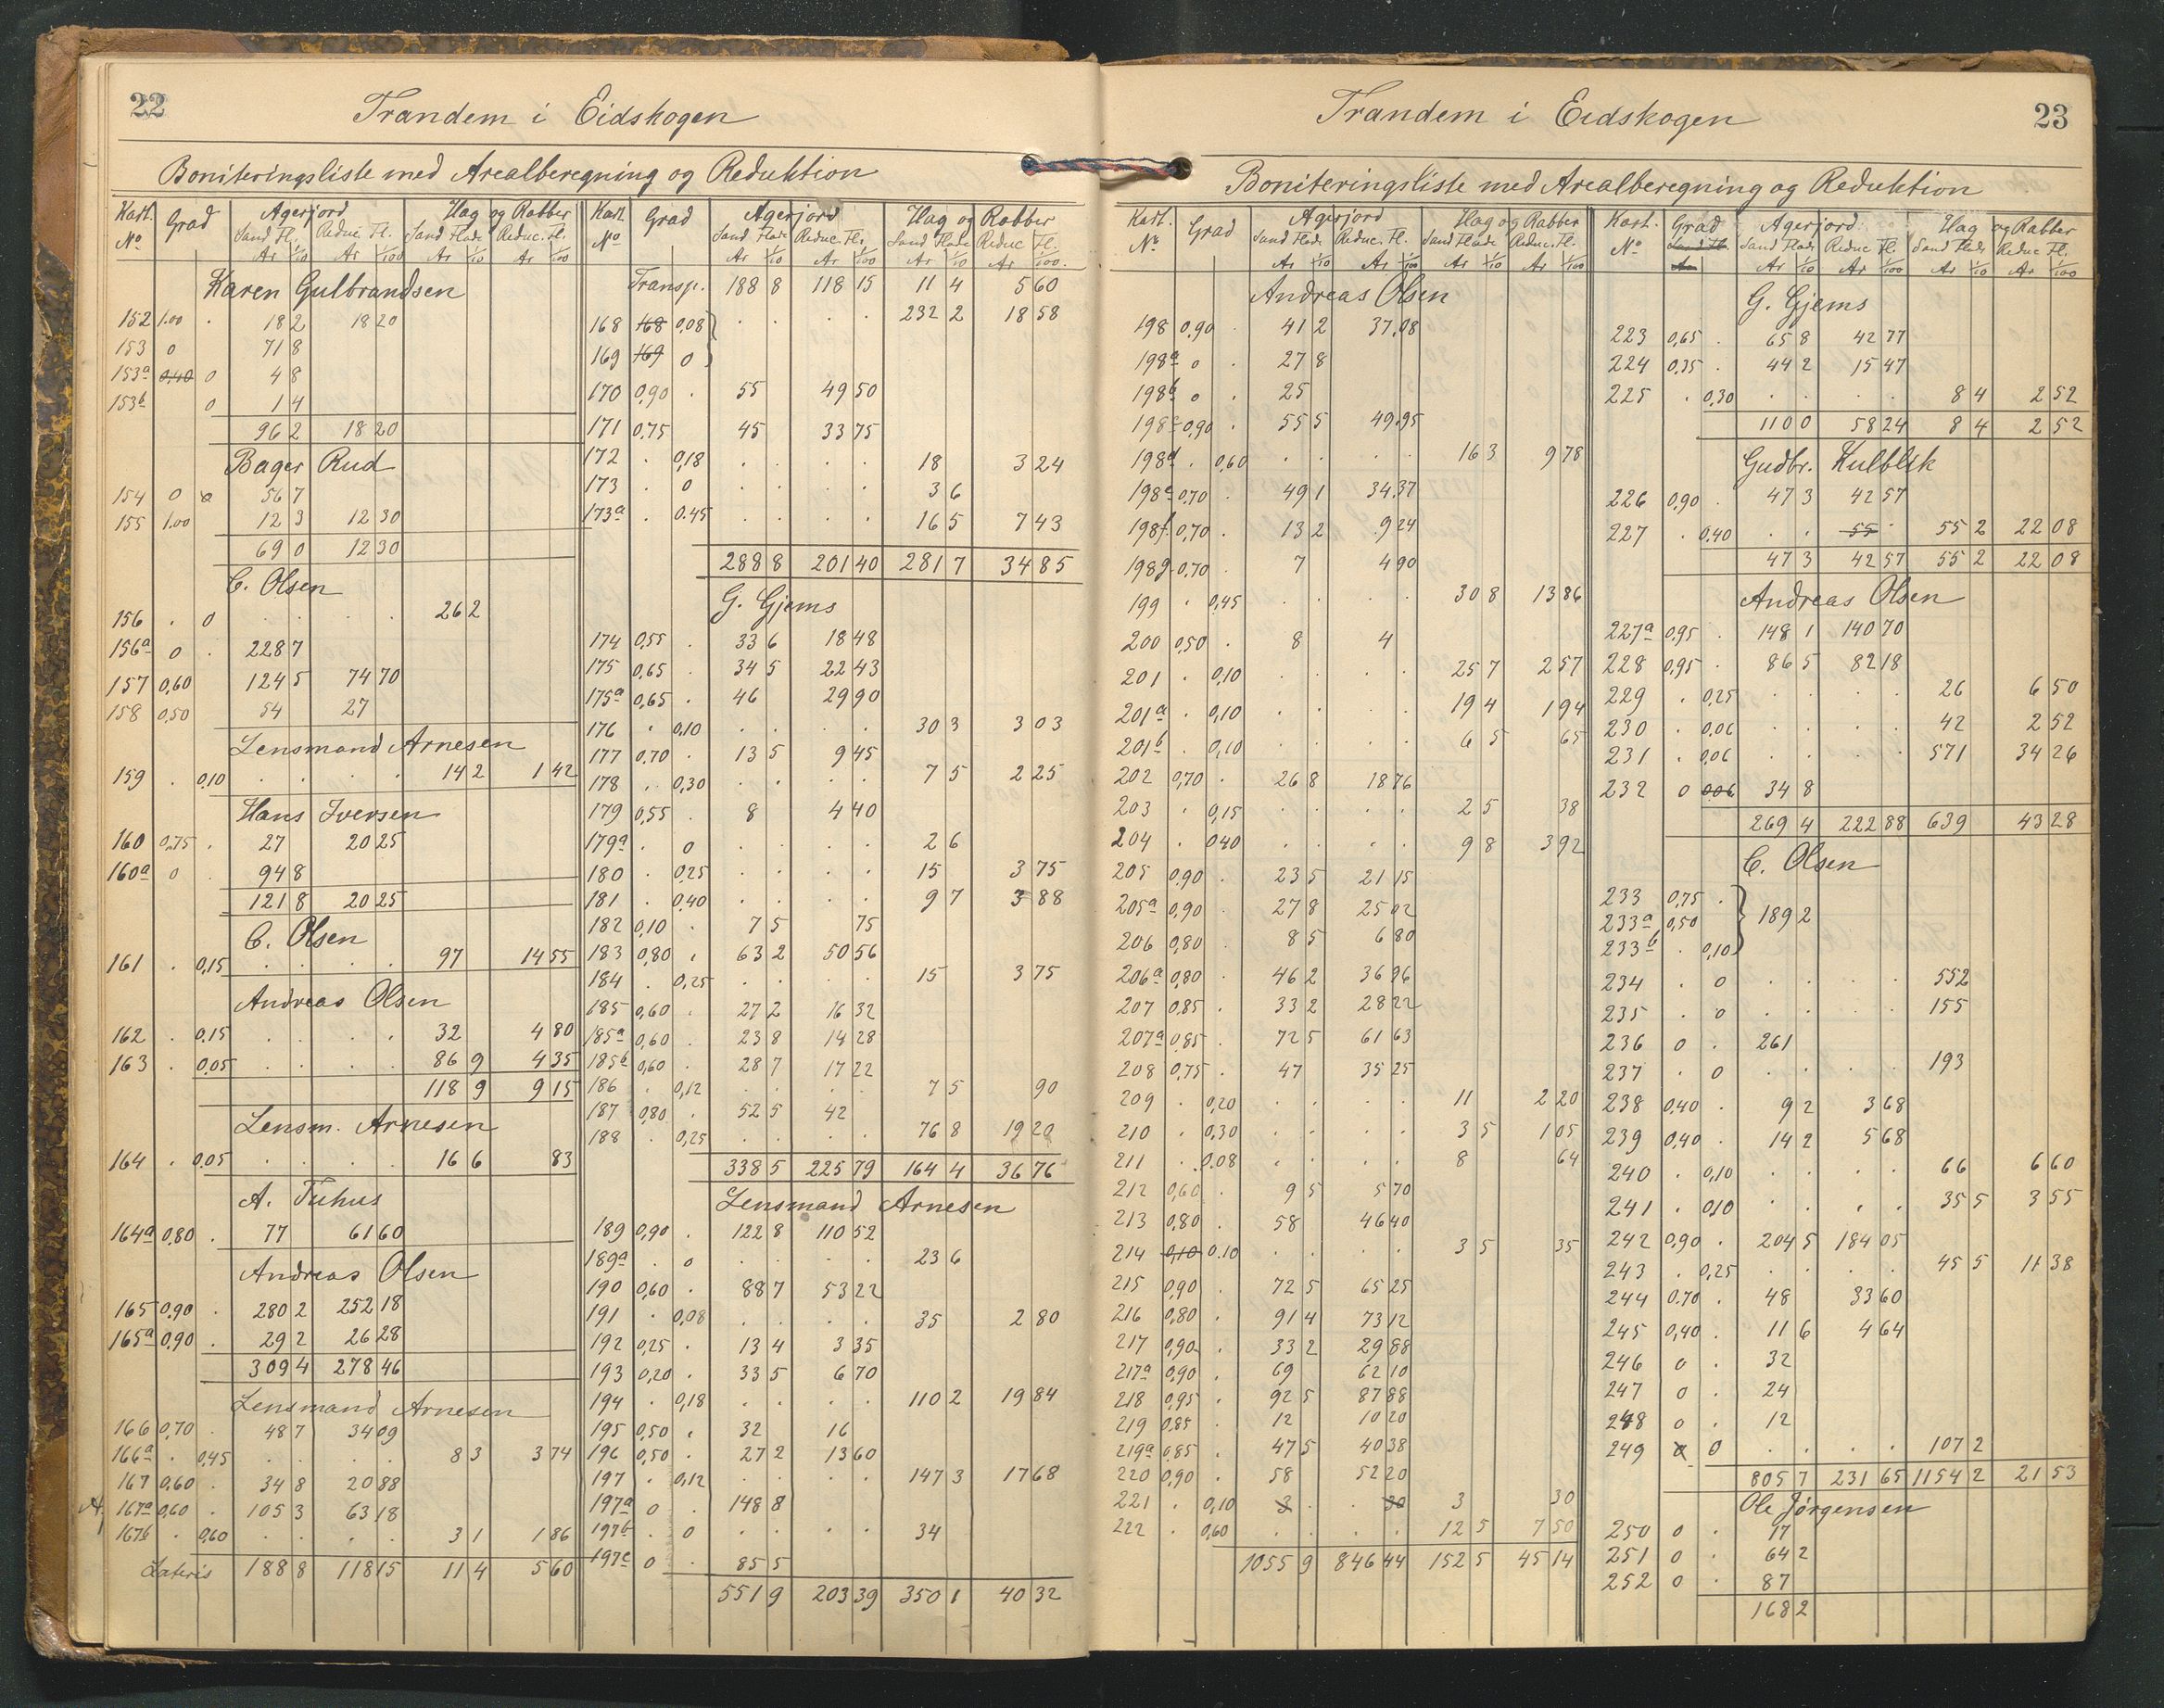 22
Trandem i Eidskogen
Boniteringsliste med Arealberegning og Reduktion
Kart. No Grad Agerjord Hag og Rabber
Sand Fl. Reduc. Fl. Sand Flade Reduc. Fl.
Ar 1/10 Ar 1/100 Ar 1/10 Ar 1/100
Karen Gulbrandsen
152 1.00 . 18 2 18 20
153 0 71 8
153a 0,40 0 4 8
153b 0 1 4
96 2 18 20
Bager Rud
154 0 0 56 7
155 1.00 12 3 12 30
69 0 12 30
C. Olsen
156 . 0 . . . . 26 2
156a 0 . 228 7
157 0,60 124 5 74 70
158 0,50 54 27
Lensmand Arnesen
159 . 0,10 . . . . 14 2 1 42
Hans Iversen
160 0,75 . 27 20 25
160a 0 . 94 8
121 8 20 25
C. Olsen
161 . 0,15 . . . . 97 14 55
Andreas Olsen
162 . 0,15 . . . . 32 4 80
163 . 0,05 . . . . 86 9 4 35
118 9 9 15
Lensm. Arnesen
164 . 0,05 . . . . 16 6 83
A. Tuhus
164a 0,80 . 77 61 60
Andreas Olsen
165 0,90 . 280 2 252 18
165a 0,90 . 29 2 26 28
309 4 278 46
Lensmand Arnesen
166 0,70 . 48 7 34 09
166a . 0,45 . . . . 8 3 3 74
167 0,60 . 34 8 20 88
A. 167a 0,60 . 105 3 63 18
167b . 0,60 . . . . 3 1 1 86
Lateris 188 8 118 15 11 4 5 60
Kart. No Grad Agerjord Hag og Rabber
Sand Flade Reduc. Fl. Sand Flade Reduc Fl.
Ar 1/10 Ar 1/100 Ar 1/10 Ar 1/100.
Transp. 188 8 118 15 11 4 5 60
168 168 0,08 } . . . . 232 2 18 58
169 169 0 }
170 0,90 . 55 49 50
171 0,75 45 33 75
172 . 0,18 . . . . 18 3 24
173 . 0 . . . . 3 6
173a . 0.45 . . . . 16 5 7 43
288 8 201 40 281 7 34 85
G. Gjems
174 0,55 . 33 6 18 48
175 0,65 . 34 5 22 43
175a 0,65 . 46 29 90
176 . 0,10 . . . . 30 3 3 03
177 0,70 . 13 5 9 45
178 . 0,30 . . . . 7 5 2 25
179 0,55 . 8 4 40
179a . 0 . . . . 2 6
180 . 0,25 . . . . 15 3 75
181 . 0,40 . . . . 9 7 3 88
182 0,10 . 7 5 75
183 0,80 . 63 2 50 56
184 . 0,25 . . . . 15 3 75
185 0,60 . 27 2 16 32
185a 0,60 . 23 8 14 28
185b 0,60 . 28 7 17 22
186 . 0,12 . . . . 7 5 90
187 0,80 . 52 5 42
188 . 0,25 . . . . 76 8 19 20
338 5 225 79 164 4 36 76
Lensmand Arnesen
189 0,90 . 122 8 110 52
189a . 0 . . . . 23 6
190 0,60 . 88 7 53 22
191 . 0,08 . . . . 35 2 80
192 0,25 . 13 4 3 35
193 0,20 . 33 5 6 70
194 . 0,18 . . . . 110 2 19 84
195 0,50 . 32 16
196 0,50 . 27 2 13 60
197 . 0,12 . . . . 147 3 17 68
197a 0 . 148 8
197b . 0 . . . . 34
197c 0 . 85 5
551 9 203 39 350 1 40 32
Trandem i Eidskogen
23
Boniteringsliste med Arealberegning og Reduktion
Kart. No Grad Agerjord Hag og Rabber
Sand Flade Reduc. Fl. Sand Flade Reduc. Fl.
Ar 1/10 Ar 1/100 Ar 1/10 Ar 1/100
Andreas Olsen
198 0,90 . 41 2 37,08
198a 0 . 27 8
198b 0 . 25
198c 0,90 . 55 5 49,95
198d . 0,60 . . . . 16 3 9 78
198e 0,70 . 49 1 34,37
198f 0,70 . 13 2 9 24
198g 0,70 . 7 4 90
199 . 0,45 . . . . 30 8 13 86
200 0,50 . 8 4
201 . 0,10 . . . . 25 7 2 57
201a . 0,10 . . . . 19 4 1 94
201b . 0,10 . . . . 6 5 65
202 0,70 . 26 8 18 76
203 . 0,15 . . . . 2 5 38
204 . 0 40 . . . . 9 8 3 92
205 0,90 . 23 5 21 15
205a 0,90 . 27 8 25 02
206 0,80 . 8 5 6 80
206a 0,80 . 46 2 36 96
207 0,85 . 33 2 28 22
207a 0,85 . 72 5 61 63
208 0,75 . 47 35 25
209 . 0,20 . . . . 11 2 20
210 . 0,30 . . . . 3 5 1 05
211 . 0.08 . . . . 8 64
212 0,60 . 9 5 5 70
213 0,80 . 58 46 40
214 0,10 0.10 . . . . 3 5 35
215 0,90 . 72 5 65 25
216 0,80 . 91 4 73 12
217 0,90 . 33 2 29 88
217a 0,90 . 69 62 10
218 0,95 . 92 5 87 88
219 0,85 . 12 10 20
219a 0,85 . 47 5 40 38
220 0,90 . 58 52 20
221 . 0,10 3 . . 30 3 30
222 . 0,60 . . . . 12 5 7 50
1055 9 846 44 152 5 45 14
Kart. No Grad Agerjord Hag og Rabber
Sand Fl. Sand Flade Reduc Fl. Sand Flade Reduc Fl.
Ar Ar 1/10 Ar 1/100 Ar 1/10 Ar 1/100
G. Gjems
223 0,65 . 65 8 42 77
224 0,35 . 44 2 15 47
225 . 0,30 . . . . 8 4 2 52
110 0 58 24 8 4 2 52
Gudbr. Kulblik
226 0,90 . 47 3 42 57
227 . 0,40 . . 55 . 55 2 22 08
47 3 42 57 55 2 22 08
Andreas Olsen
227a 0,95 . 148 1 140 70
228 0,95 . 86 5 82 18
229 . 0,25 . . . . 26 6 50
230 . 0,06 . . . . 42 2 52
231 . 0,06 . . . . 571 34 26
232 0 0,06 34 8
269 4 222 88 639 43 28
C. Olsen
233 0,75 . }
233a 0,50 } 189 2
233b . 0,10 }
234 . 0 . . . . 552
235 . 0 . . . . 155
236 0 . 261
237 . 0 . . . . 193
238 0,40 . 9 2 3 68
239 0,40 . 14 2 5 68
240 . 0,10 . . . . 66 6 60
241 . 0,10 . . . . 35 5 3 55
242 0,90 . 204 5 184 05
243 . 0,25 . . . . 45 5 11 38
244 0.70 . 48 33 60
245 0,40 . 11 6 4 64
246 0 . 32
247 0 . 24
248 0 . 12
249 0 0 . . . . 107 2
805 7 231 65 1154 2 21 53
Ole Jørgensen
250 0 . 17
251 0 . 64 2
252 0 . 87
168 2